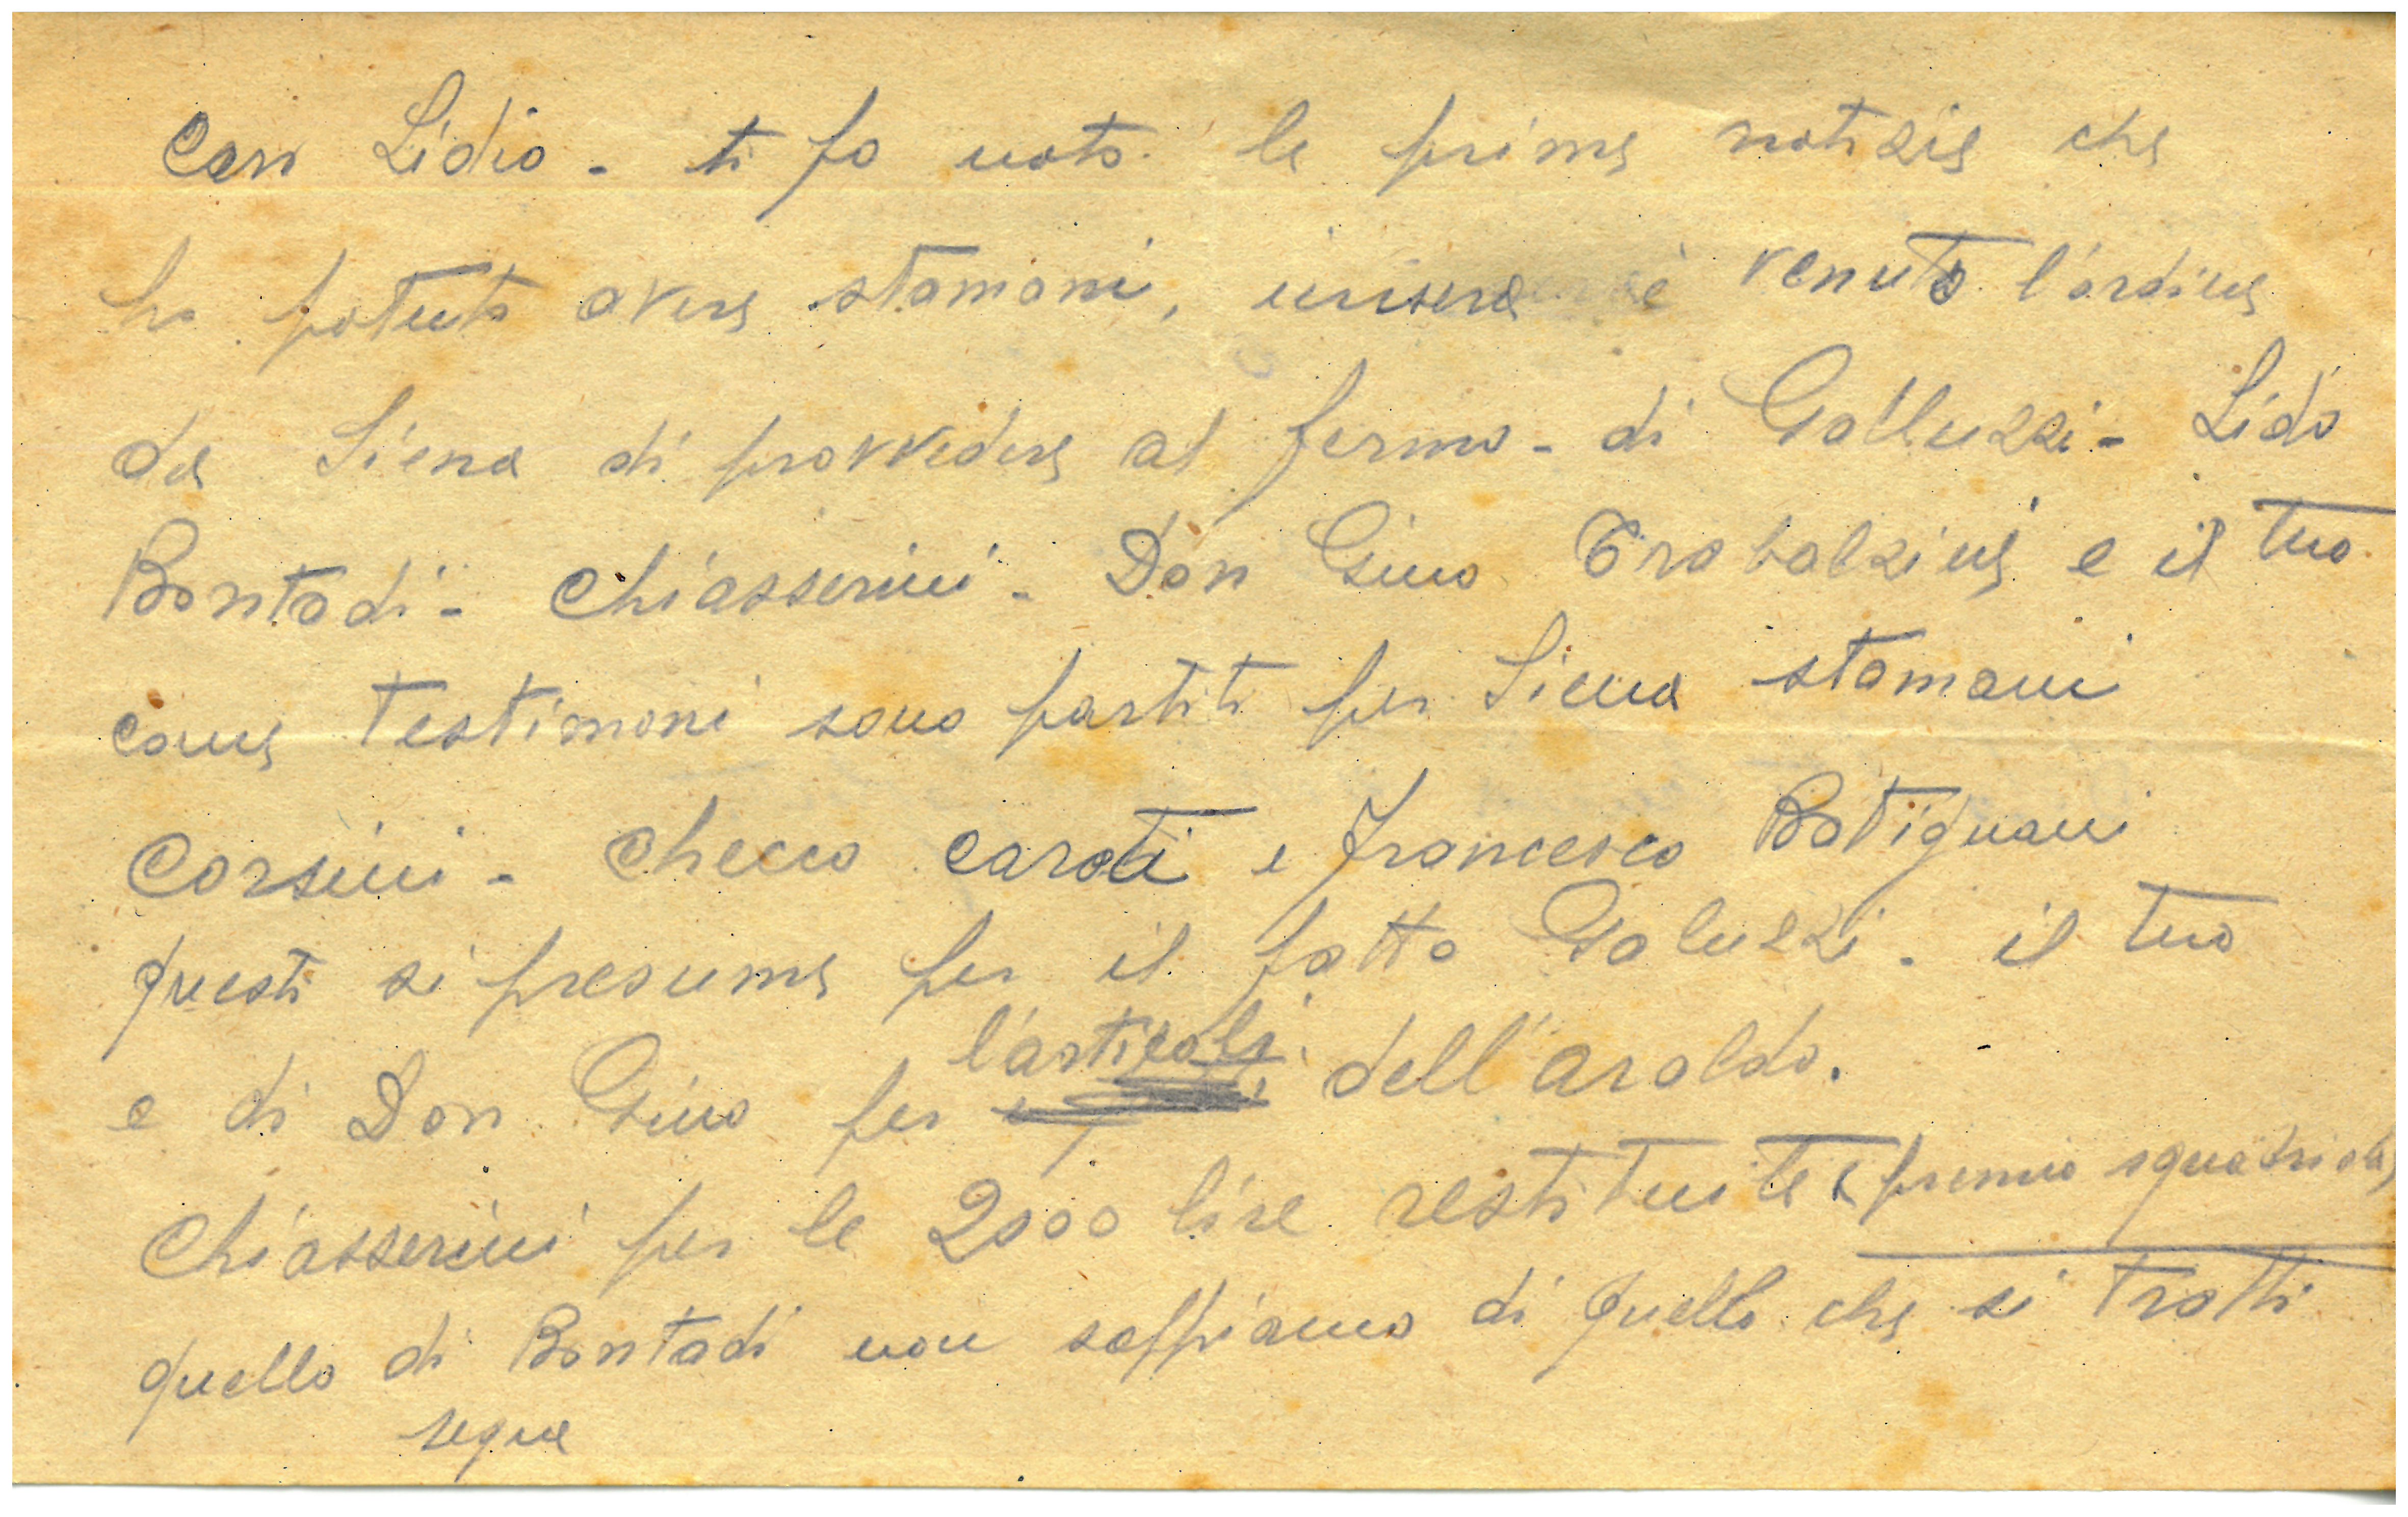 Caro Lidio - ti fo noto le prime notizie che
ho potuto avere stamani, iersera è venuto l'ordine
da Siena di provvedere al fermo - di Galluzzi - Lido
Bontadi - Chiasserini - Don Gino Trabalzini e il tuo
come testimoni sono partiti per Siena stamani
Corsini - Checco Caroti e Francesco Batignani
questi si presume per il fatto Galuzzi - il tuo
e di Don Gino per l'articolo dell'araldo.
Chiasserini per le 2000 lire restituite premio squadrista
quello di Bontadi non sappiamo di quello che si tratti
segue